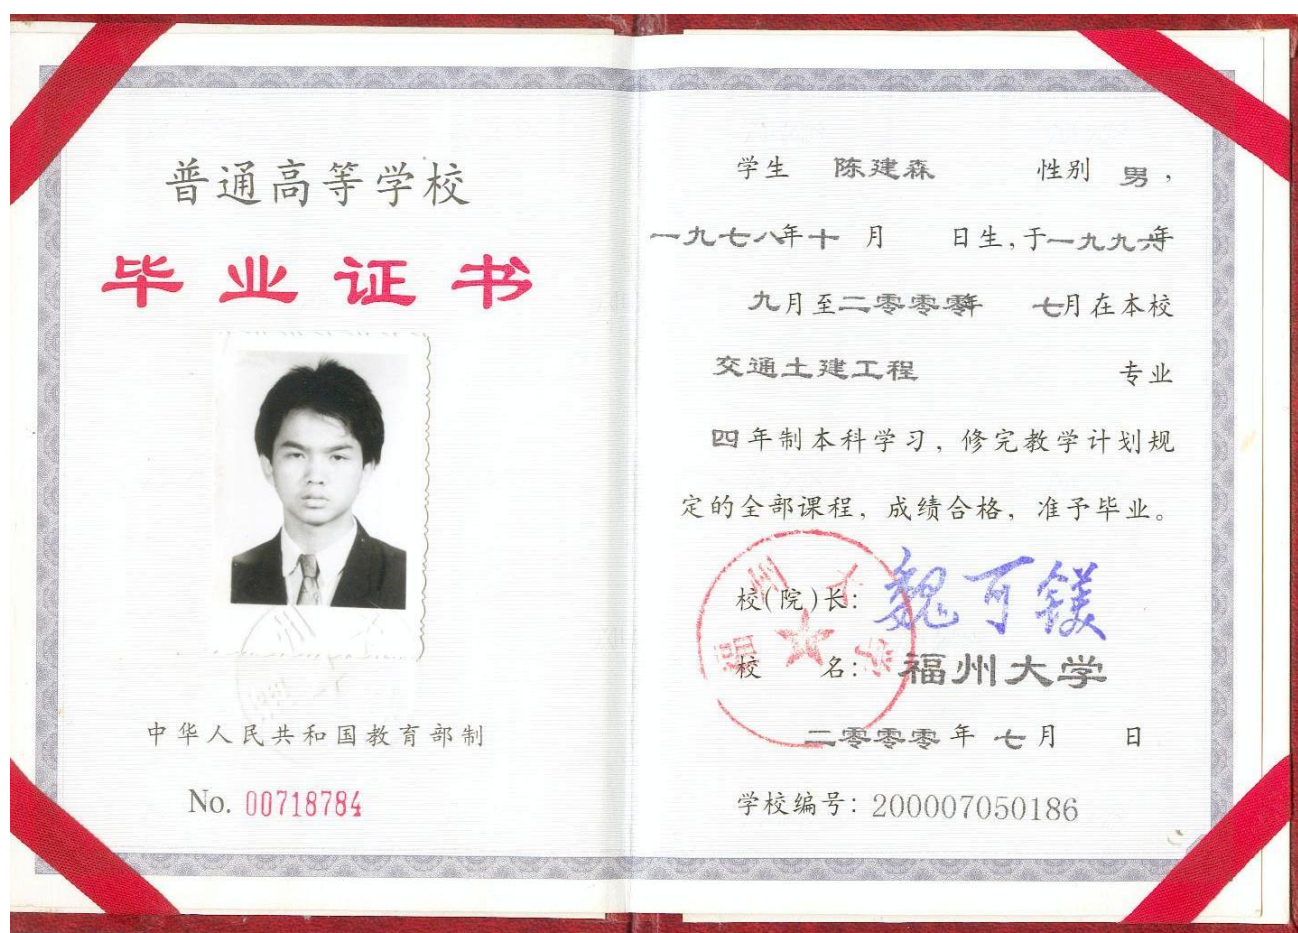 普通高等学校
毕业证书
中华人民共和国教育部制
No. 00718784
学生 陈建森 性别 男，
一九七八年十 月 日生，于一九九六年
九月至二零零零年 七月在本校
交通土建工程 专业
四年制本科学习，修完教学计划规
定的全部课程，成绩合格，准予毕业。
校(院)长: 魏可镁
校 名: 福州大学
福州大学
二零零零年 七月 日
学校编号: 200007050186